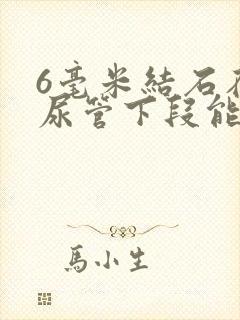 6毫米結石
尿管下段能
馬小生